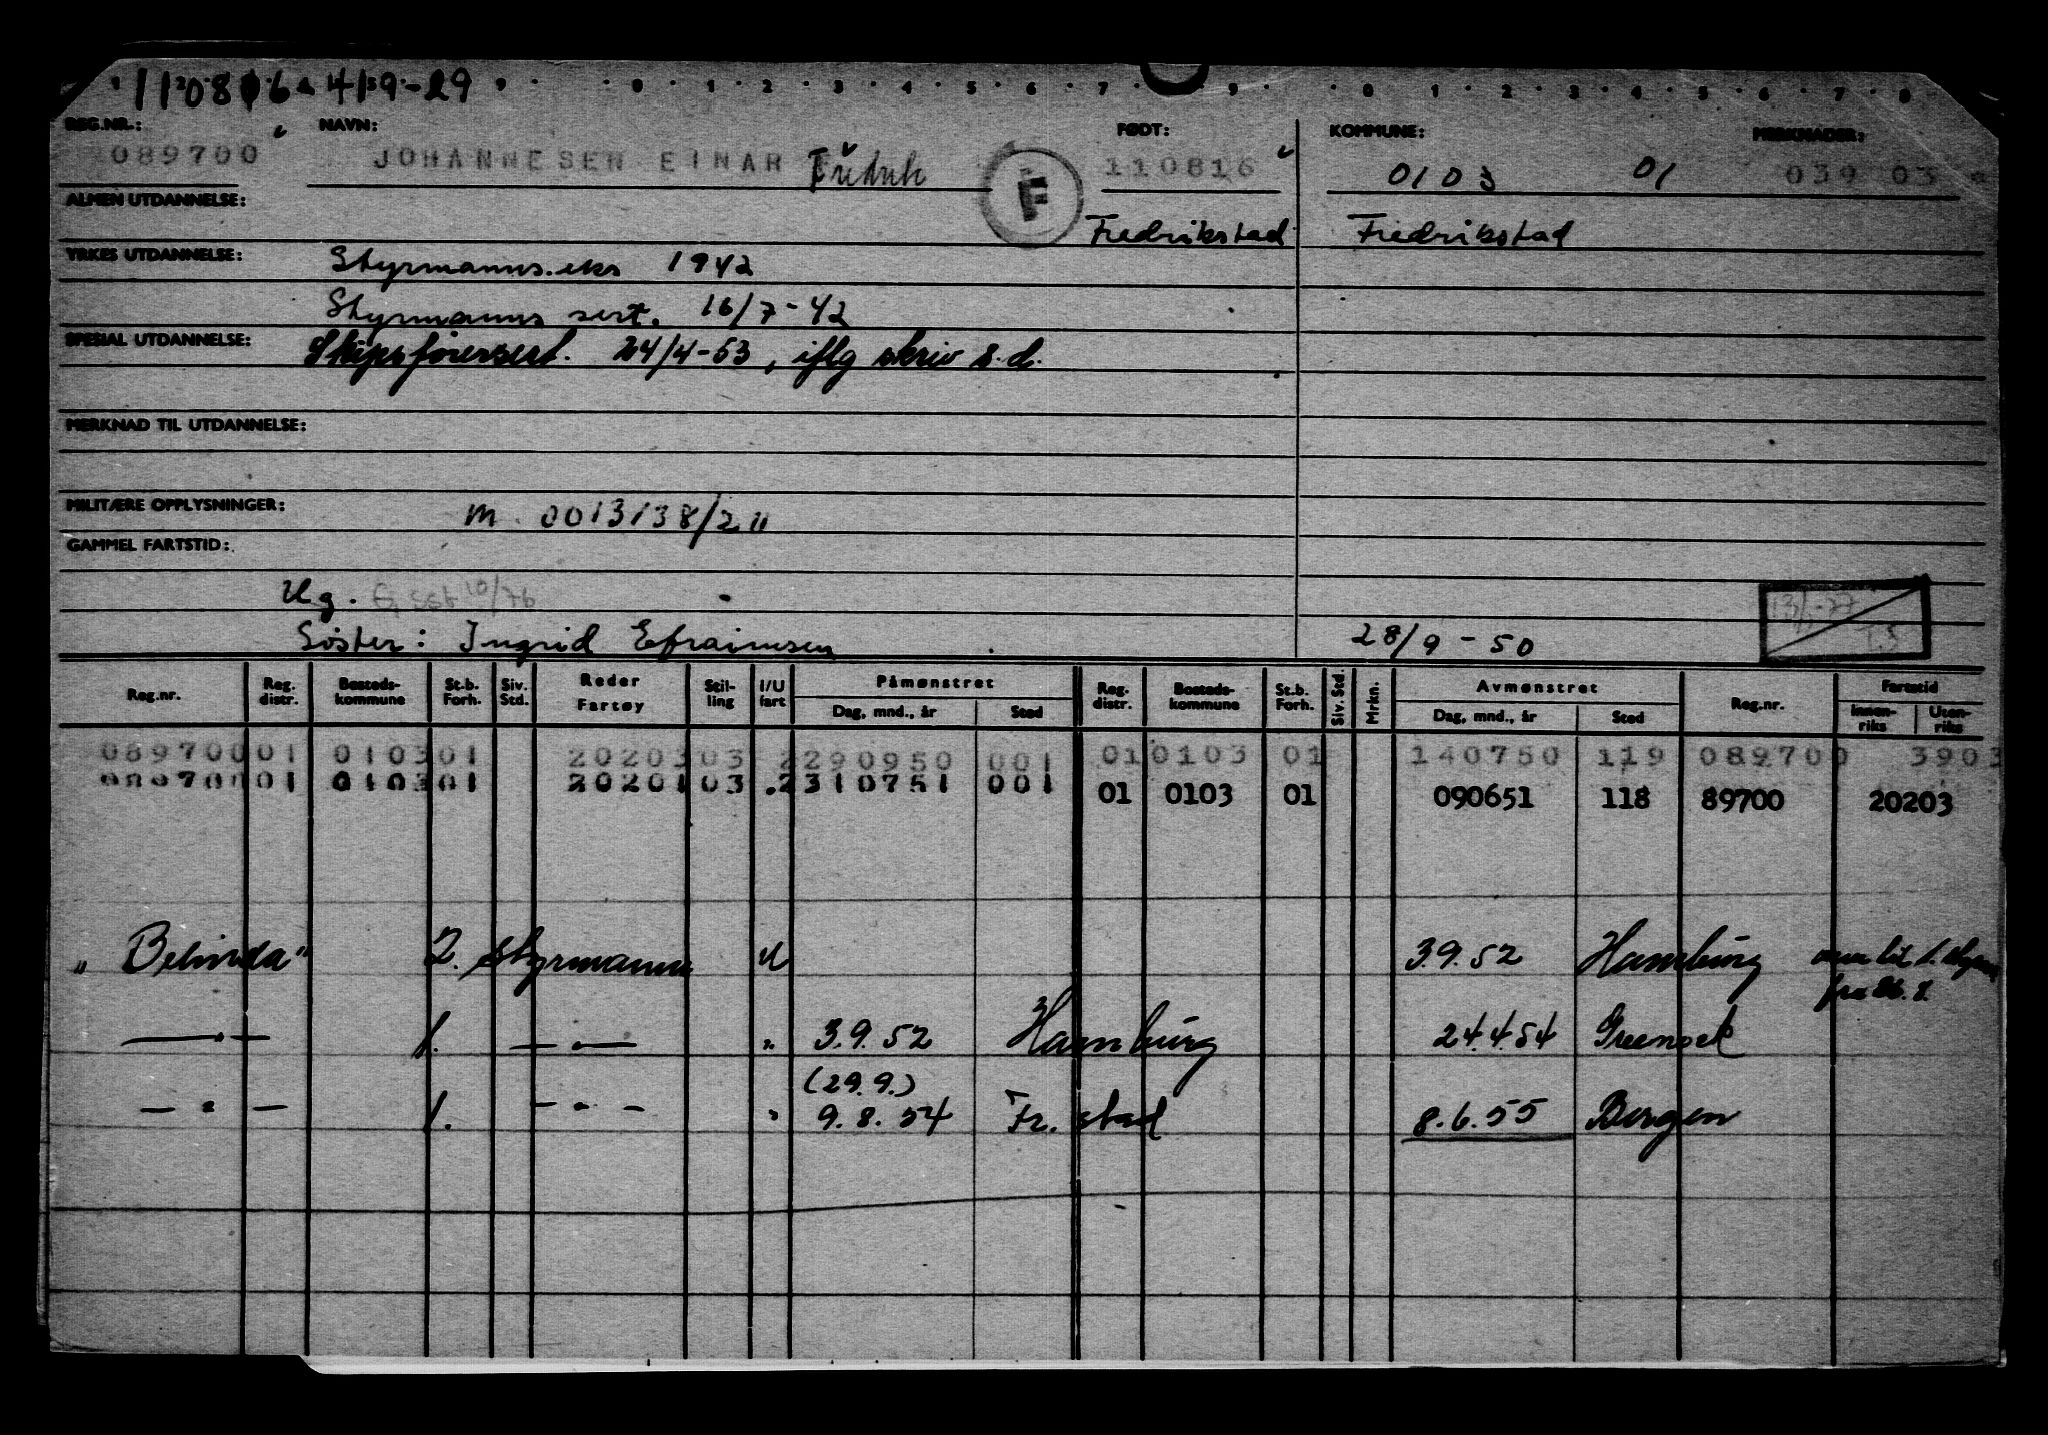 110816 41319-29
REG.NR.: NAVN: FØDT: KOMMUNE: MERKNADER:
089700 JOHANNESEN EINAR Fredrik F 110816 0103 01 039 03
ALMEN UTDANNELSE: Fredrikstad Fredrikstad
YRKES UTDANNELSE: Styrmanns.eks 1942
Styrmanns sert. 16/7-42
SPESIAL UTDANNELSE: Skipsførersert. 24/4-53, iflg skriv s.d.
MERKNAD TIL UTDANNELSE:
MILITÆRE OPPLYSNINGER: m. 0013138/2 11
GAMMEL FARTSTID:
Ug. 10/76
Søster: Ingrid Efraimsen 28/9-50
Reg.nr. Reg. distr. Bosteds-kommune St.b. Forh. Siv. Std. Reder Fartøy Stil-ling I/U fart Påmønstret Dag, mnd., år Sted Reg. distr. Bosteds-kommune St.b. Forh. Siv. Std. Mrkn. Avmønstret Dag, mnd., år Sted Reg.nr. Fartstid Innen-riks Uten-riks
089700 01 0103 01 20203 03 2 290950 001 01 0103 01 140750 119 089700 3903
089700 01 0103 01 20201 03 .2 310751 001 01 0103 01 090651 118 89700 20203
"Belinda" 2. styrmann U 3.9.52 Hamburg
— " — 1. — " — " 3.9.52 Hamburg 24.4.54 Greenock
(29.9.)
— " — 1. — " — " 9.8.54 Fr. stad 8.6.55 Bergen